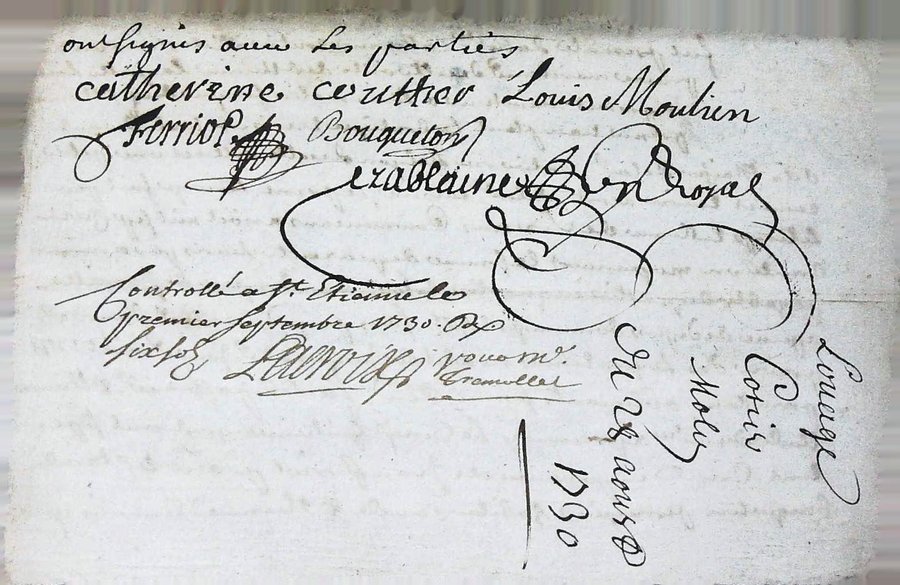 ont signés avec les parties
catherine couther Louis Moulien
Ferriol Bouqueton
erablaine Royal
Controllé a St. Etienne le
premier Septembre 1730. R
six sols Lacroix pour Mr.
Tremollet
Louage
du 28 aoust
1730